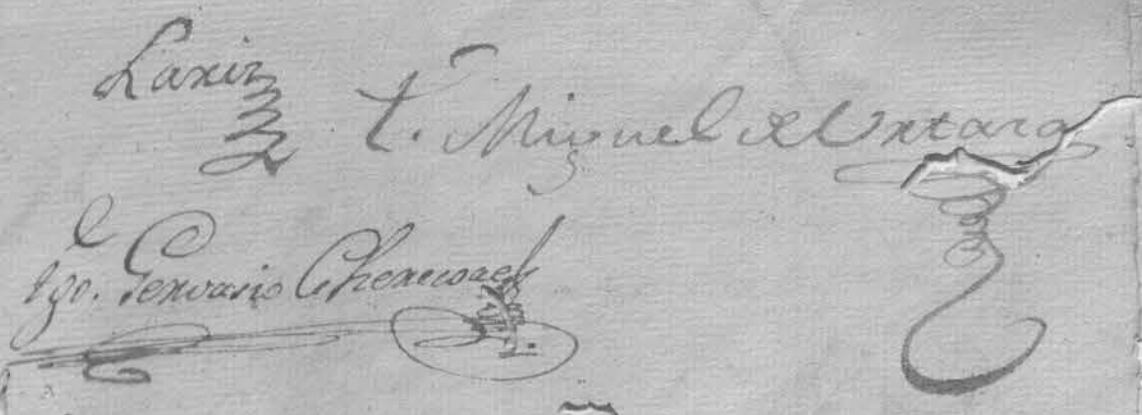 Lariz
t. Miguel de Untara
tgo. Gervasio Cherecoaez